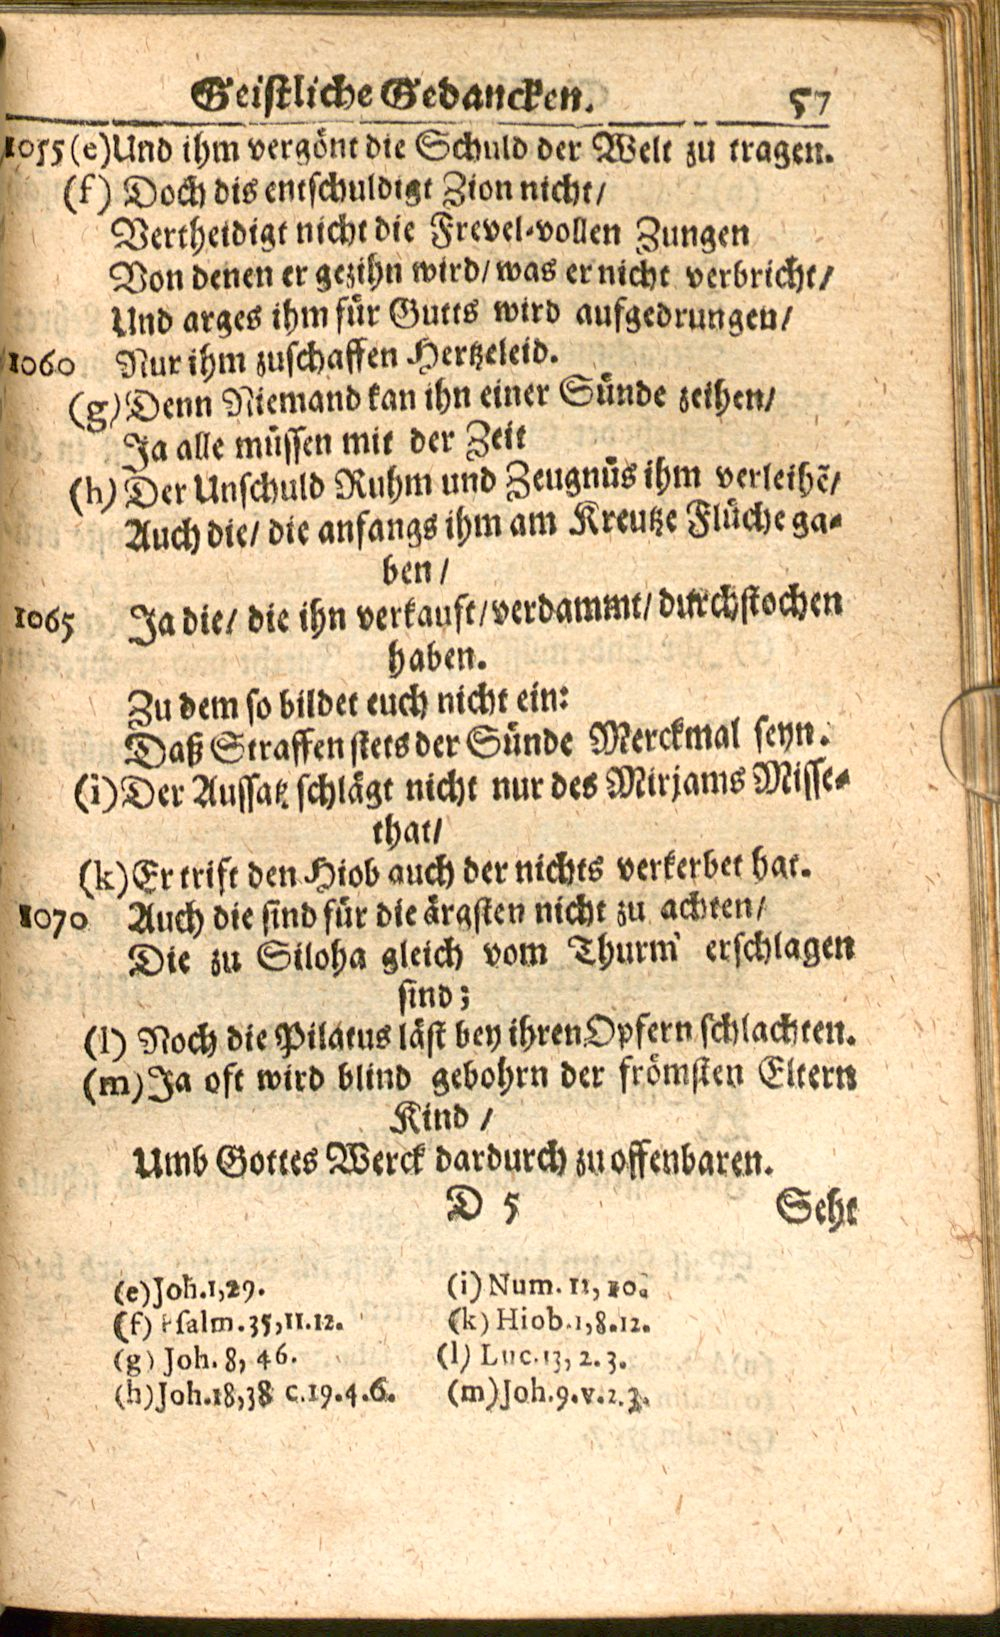 Geistliche Gedancken. 57
1055 (e) Und ihm vergönt die Schuld der Welt zu tragen.
(f) Doch dis entschuldigt Zion nicht/
Vertheidigt nicht die Frevel-vollen Zungen
Von denen er gezihn wird/ was er nicht verbricht/
Und arges ihm für Gutts wird aufgedrungen/
1060 Nur ihm zuschaffen Hertzeleid.
(g) Denn Niemand kan ihn einer Sünde zeihen/
Ja alle müssen mit der Zeit
(h) Der Unschuld Ruhm und Zeugnüs ihm verleihẽ/
Auch die/ die anfangs ihm am Kreutze Flüche ga-
ben/
1065 Ja die/ die ihn verkauft/ verdammt/ durchstochen
haben.
Zu dem so bildet euch nicht ein:
Daß Straffen stets der Sünde Merckmal seyn.
(i) Der Aussatz schlägt nicht nur des Mirjams Misse-
that/
(k) Er trift den Hiob auch der nichts verkerbet hat.
1070 Auch die sind für die ärgsten nicht zu achten/
Die zu Siloha gleich vom Thurm erschlagen
sind;
(l) Noch die Pilatus läst bey ihren Opfern schlachten.
(m) Ja oft wird blind gebohrn der frömsten Eltern
Kind /
Umb Gottes Werck dardurch zu offenbaren.
D 5 Seht
(e) Joh. 1, 29.
(f) Psalm. 35, 11. 12.
(g) Joh. 8, 46.
(h) Joh. 18, 38 c. 19. 4. 6.
(i) Num. 12, 10.
(k) Hiob. 1, 8. 12.
(l) Luc. 13, 2. 3.
(m) Joh. 9. v. 2. 3.